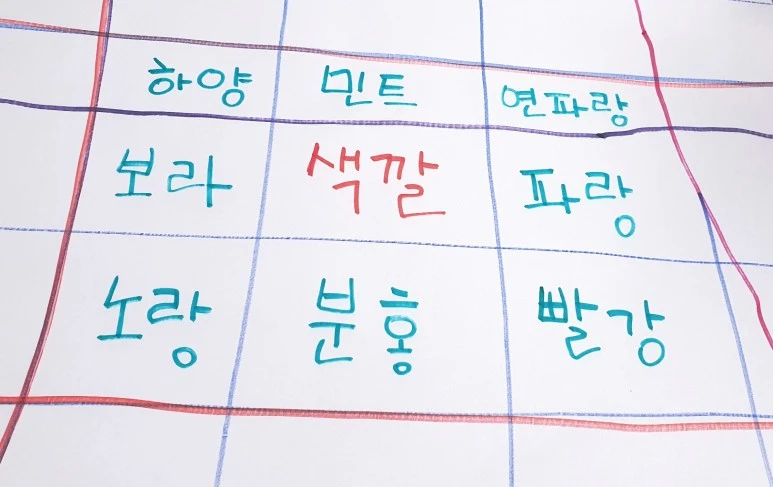 하양 민트 연파랑
보라 색깔 파랑
노랑 분홍 빨강